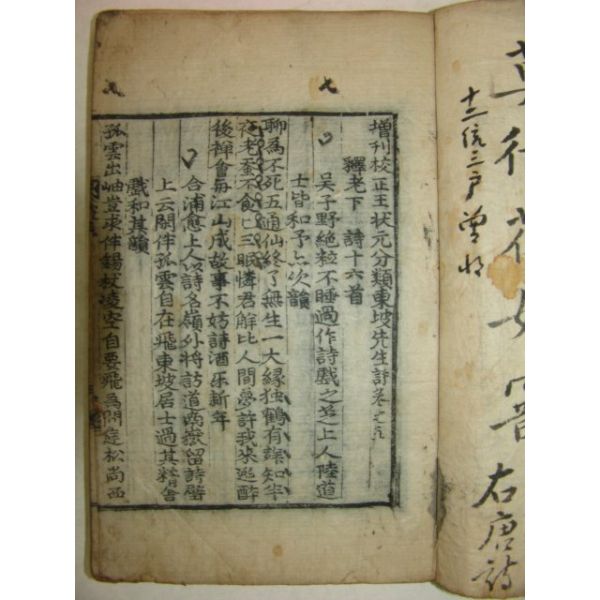 右唐詩
七
增刊校正王狀元分類東坡先生詩卷之九
釋老下 詩十六首
吳子野絶粒不睡過作詩戱之芝上人陸道
士皆和予亦次韻
聊為不死五通仙終了無生一大縁独鶴有知半
夜老蚕不已三眠憐君解比人間夢許我逃醉
後禅會江山成故事不妨詩酒乐新年
合浦愈上人以詩名嶺外將訪道南嶽留詩壁
上云閑伴孤雲自在飛東坡居士過其精舍
戱和其韻
孤雲出岫豈求伴錫杖凌空自要飛為問庭松尚西